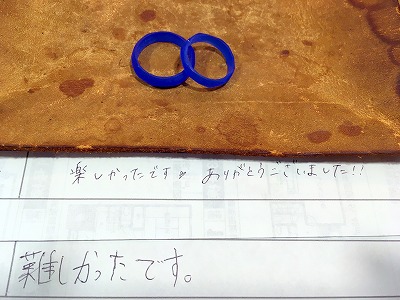 楽しかったです ありがとうございました!!
難しかったです。